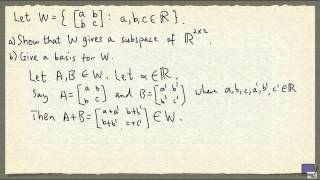 Let W = { [a b; b c] : a,b,c ∈ ℝ }.
a) Show that W gives a subspace of ℝ^{2×2}.
b) Give a basis for W.
Let A,B ∈ W. Let α ∈ ℝ.
Say A = [a b; b c] and B = [a' b'; b' c'] where a,b,c,a',b',c' ∈ ℝ
Then A+B = [a+a' b+b'; b+b' c+c'] ∈ W.